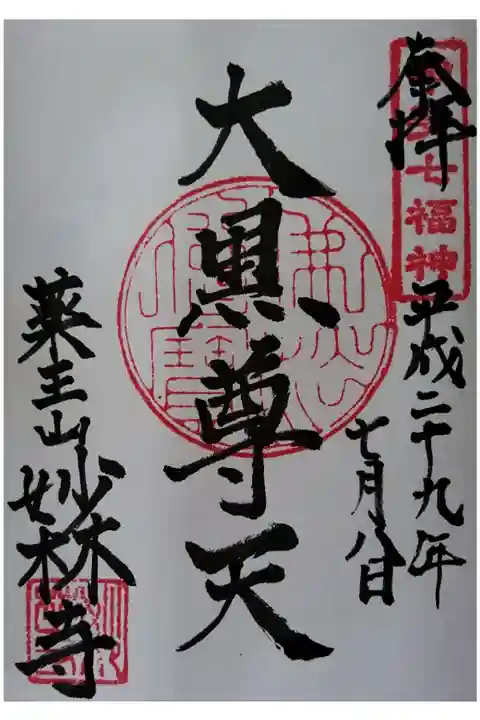 奉拝
七福神
平成二十九年
七月八日
大黒尊天
薬王山
妙林寺